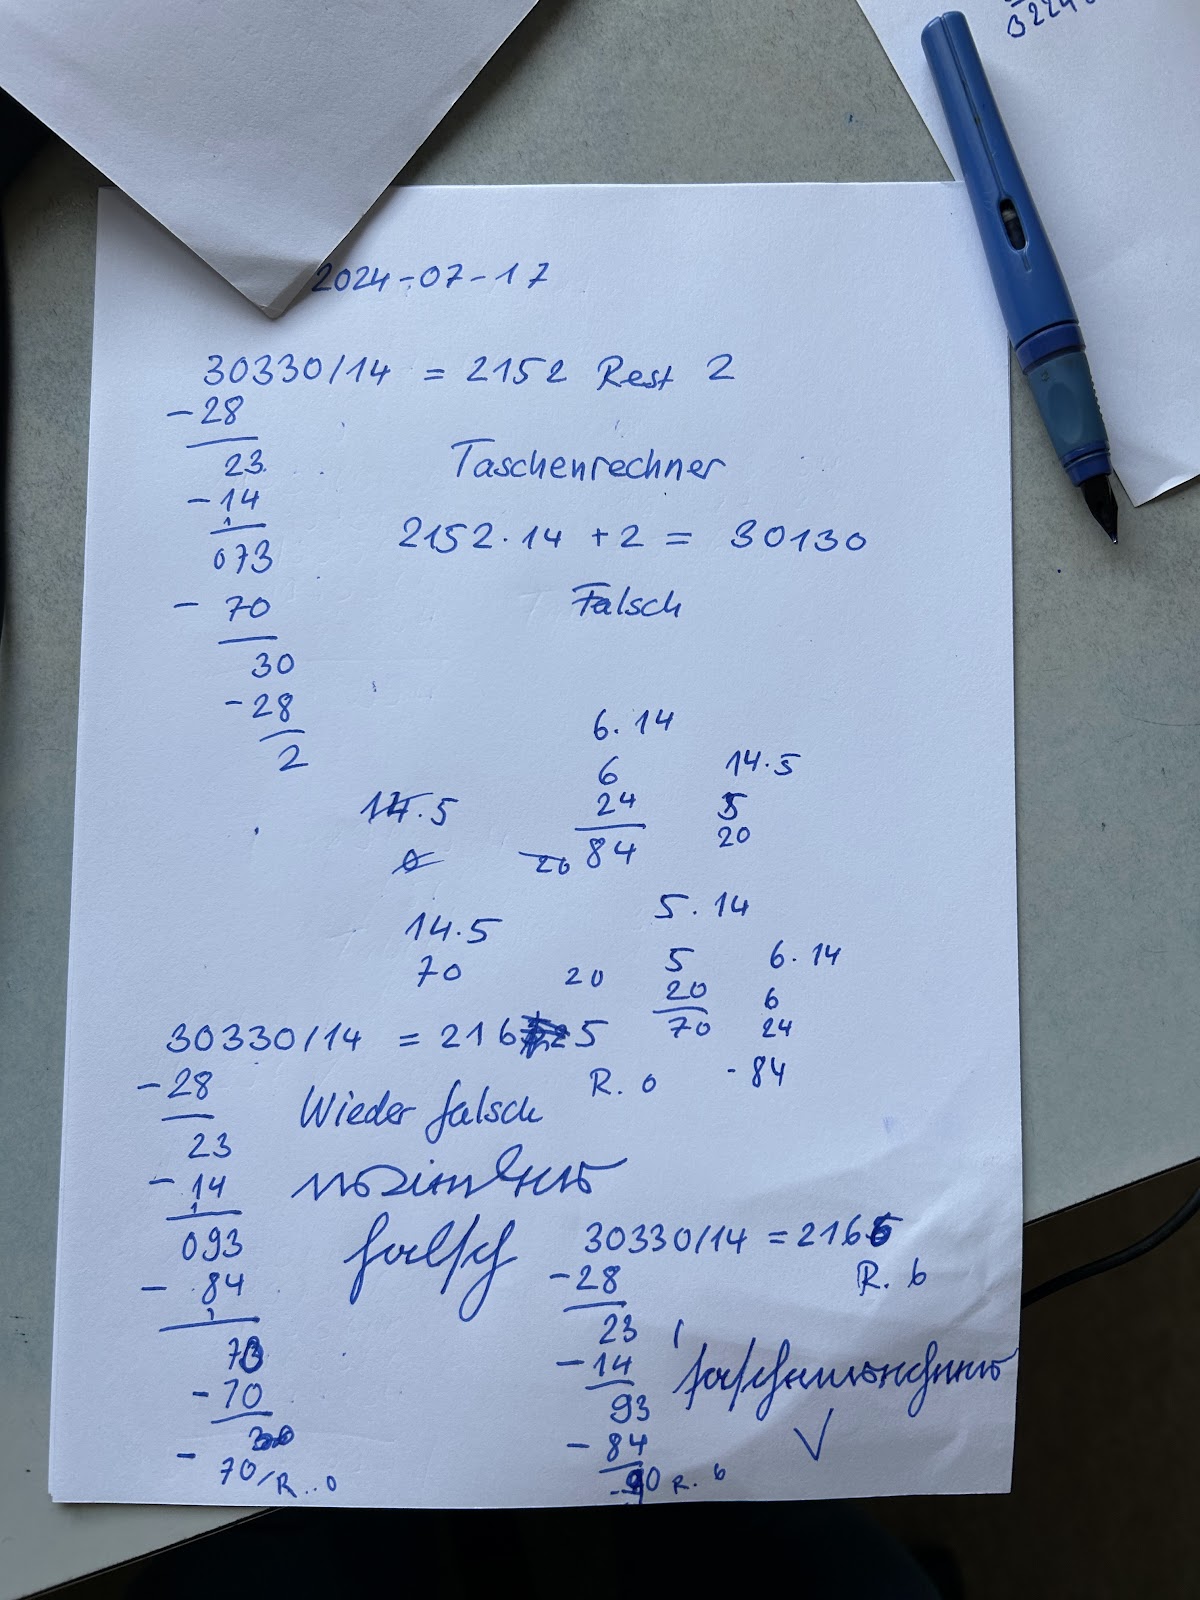 2024-07-17
30330/14 = 2152 Rest 2
-28
23
-14
1
073
- 70
30
-28
2
Taschenrechner
2152·14 + 2 = 30130
Falsch
6·14
6
24
84
14·5
5
20
14·5
20
14·5
70
20
5·14
5
20
70
6·14
6
24
-84
30330/14 = 2165
R. 0
-28
23
-14
1
093
- 84
1
70
-70
-
70/R..0
Wieder falsch
falsch
30330/14 = 2166
R. 6
-28
23
-14
93
-84
90 R. 6
Taschenrechner
✓